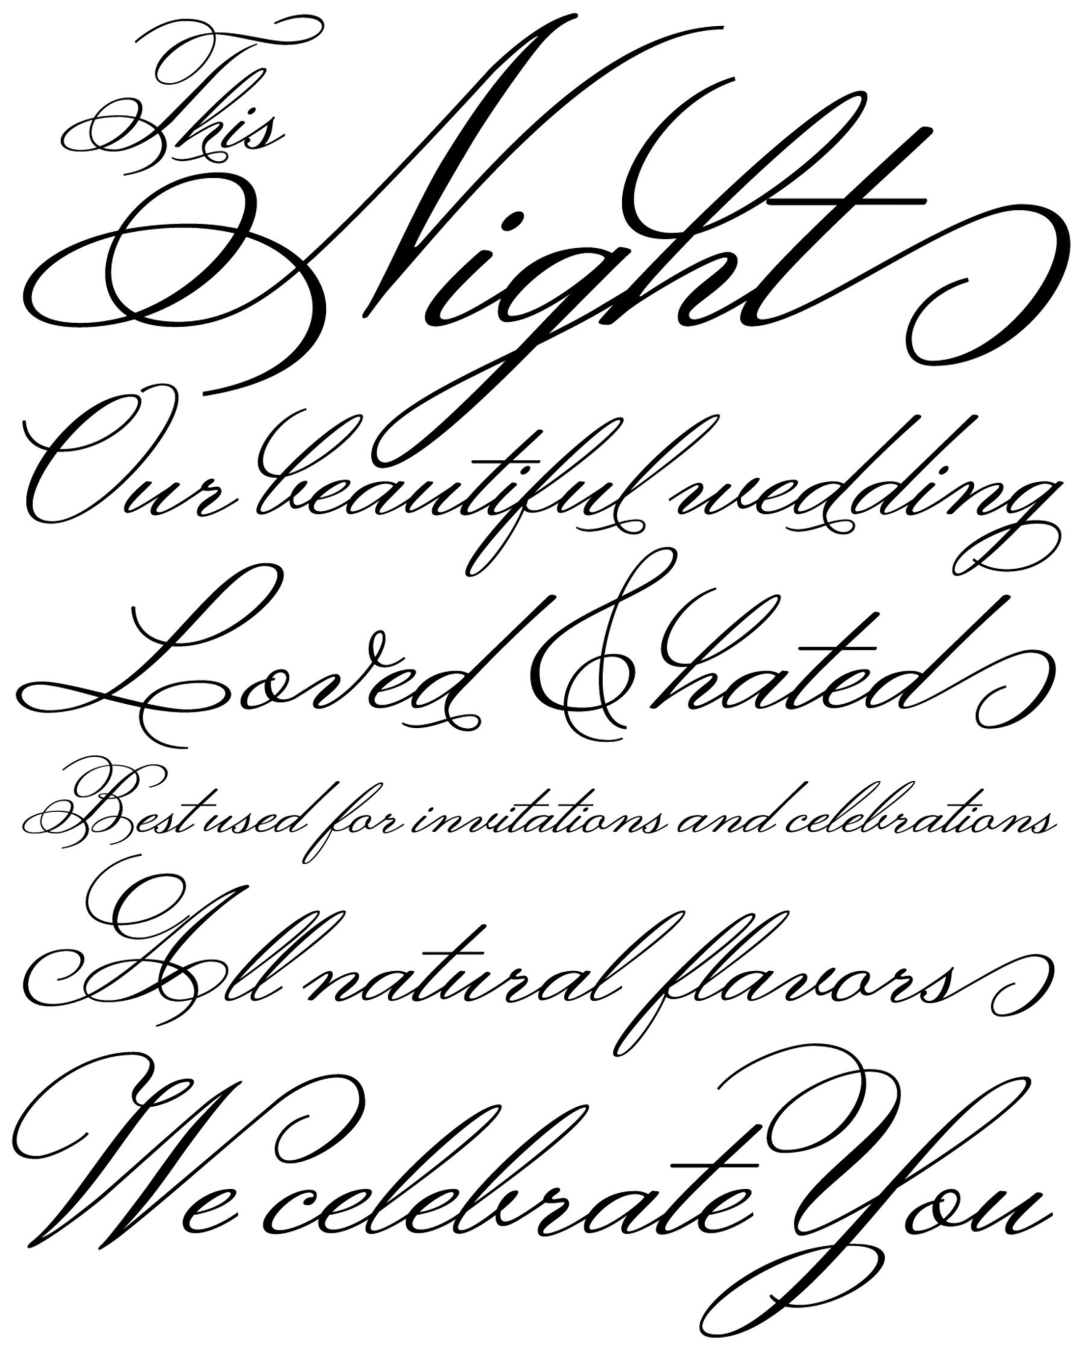 This
Night
Our beautiful wedding
Loved & hated
Best used for invitations and celebrations
All natural flavors
We celebrate You